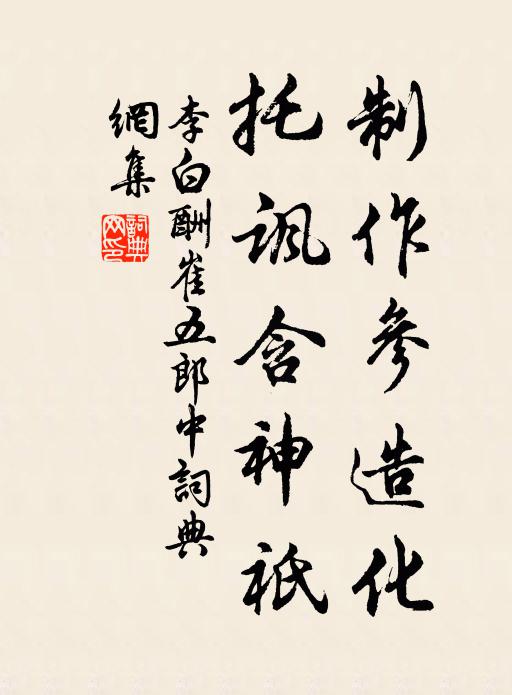 制作參造化
托諷含神祇
李白酬崔五郎中詞典
網集
詞典網印